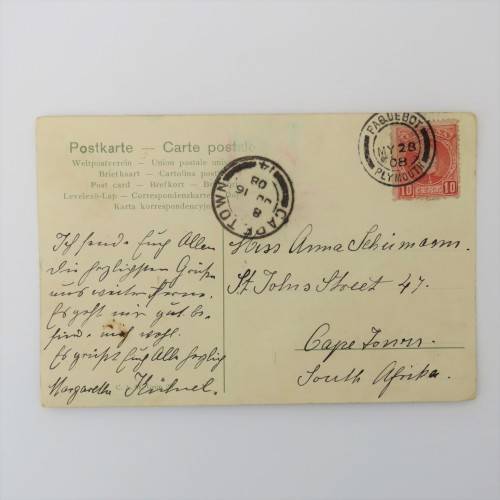 Postkarte — Carte postale
Weltpostverein – Union postale
Briefkaart – Cartolina
Post card – Brefkort –
Levelező-Lap – Correspondenzkarte
Karta korrespondencyjna
PAQUEBOT
MY 28
08
PLYMOUTH
10 10
CAPE TOWN
14
08
16
8
Ich sende Euch Allen
die herzlichsten Grüße
aus weiter Ferne.
Es geht mir gut,
wohl.
Es grüßt Euch Alle herzlich
Margaretha
Miss Anna Schümann.
St Johns Street 47.
Cape Town.
South Afrika.